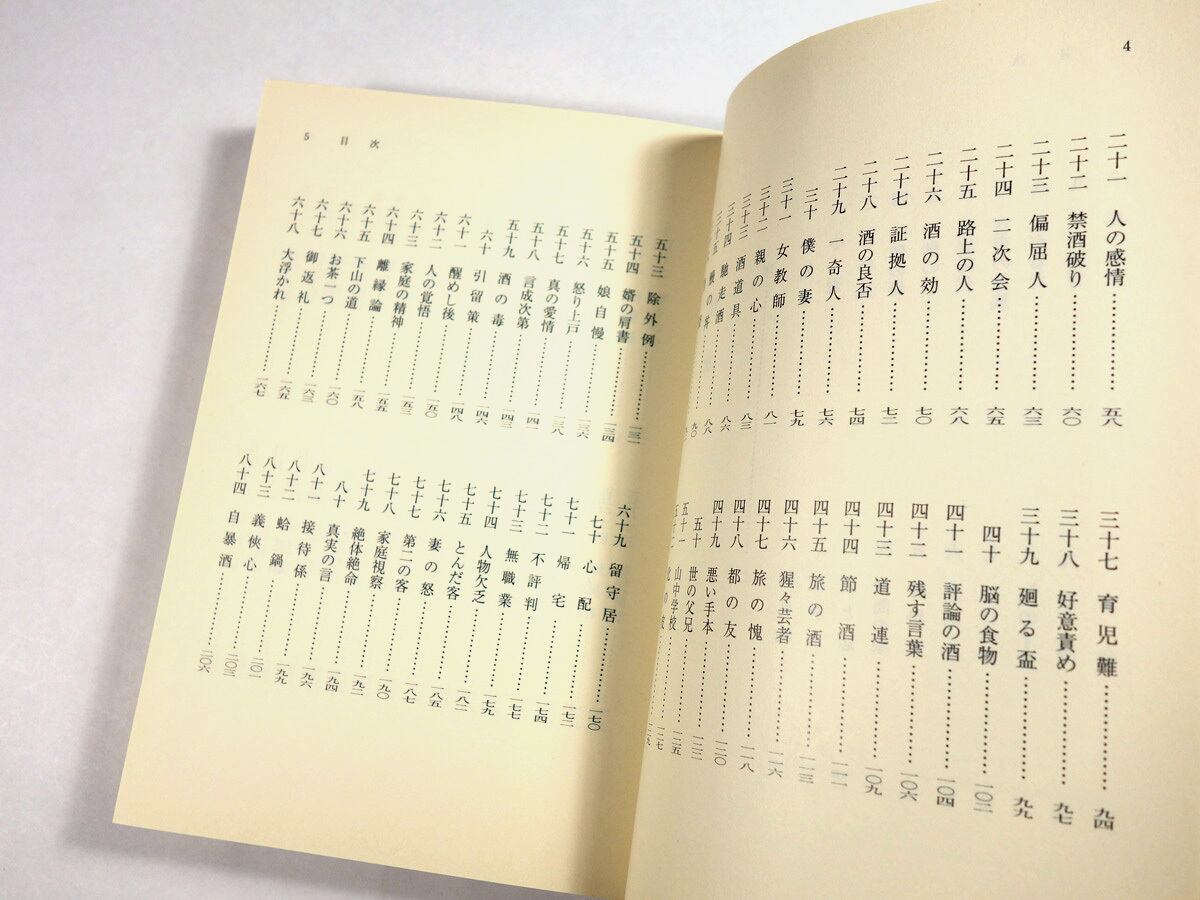 4
二十一 人の感情 五八
二十二 禁酒破り 六〇
二十三 偏屈人 六三
二十四 二次会 六五
二十五 路上の人 六八
二十六 酒の効 七〇
二十七 証拠人 七二
二十八 酒の良否 七四
二十九 一奇人 七六
三十 僕の妻 七九
三十一 女教師 八一
三十二 親の心 八三
三十三 酒道具 八六
三十四 馳走酒 八八
三十五 の丼 九〇
三十七 育児難 九四
三十八 好意責め 九七
三十九 廻る盃 九九
四十 脳の食物 一〇二
四十一 評論の酒 一〇四
四十二 残す言葉 一〇六
四十三 道連 一〇九
四十四 節酒 一一一
四十五 旅の酒 一一三
四十六 猩々芸者 一一六
四十七 旅の愧 一一八
四十八 都の友 一二〇
四十九 悪い手本 一二二
五十 世の父兄 一二五
五十一 山中学校 一二七
五十二
5 目次
五十三 除外例 一三一
五十四 婿の肩書 一三四
五十五 娘自慢 一三六
五十六 怒り上戸 一三八
五十七 真の愛情 一四一
五十八 言成次第 一四三
五十九 酒の毒 一四六
六十 引留策 一四八
六十一 醒めし後 一五〇
六十二 人の覚悟 一五三
六十三 家庭の精神 一五五
六十四 離縁論 一五八
六十五 下山の道 一六〇
六十六 お茶一つ 一六三
六十七 御返礼 一六五
六十八 大浮かれ 一六七
六十九 留守居 一七〇
七十 心配 一七二
七十一 帰宅 一七四
七十二 不評判 一七七
七十三 無職業 一七九
七十四 人物欠乏 一八二
七十五 とんだ客 一八五
七十六 妻の怒 一八七
七十七 第二の客 一九〇
七十八 家庭視察 一九二
七十九 絶体絶命 一九四
八十 真実の言 一九六
八十一 接待係 一九九
八十二 蛤鍋 二〇一
八十三 義俠心 二〇三
八十四 自暴酒 二〇六